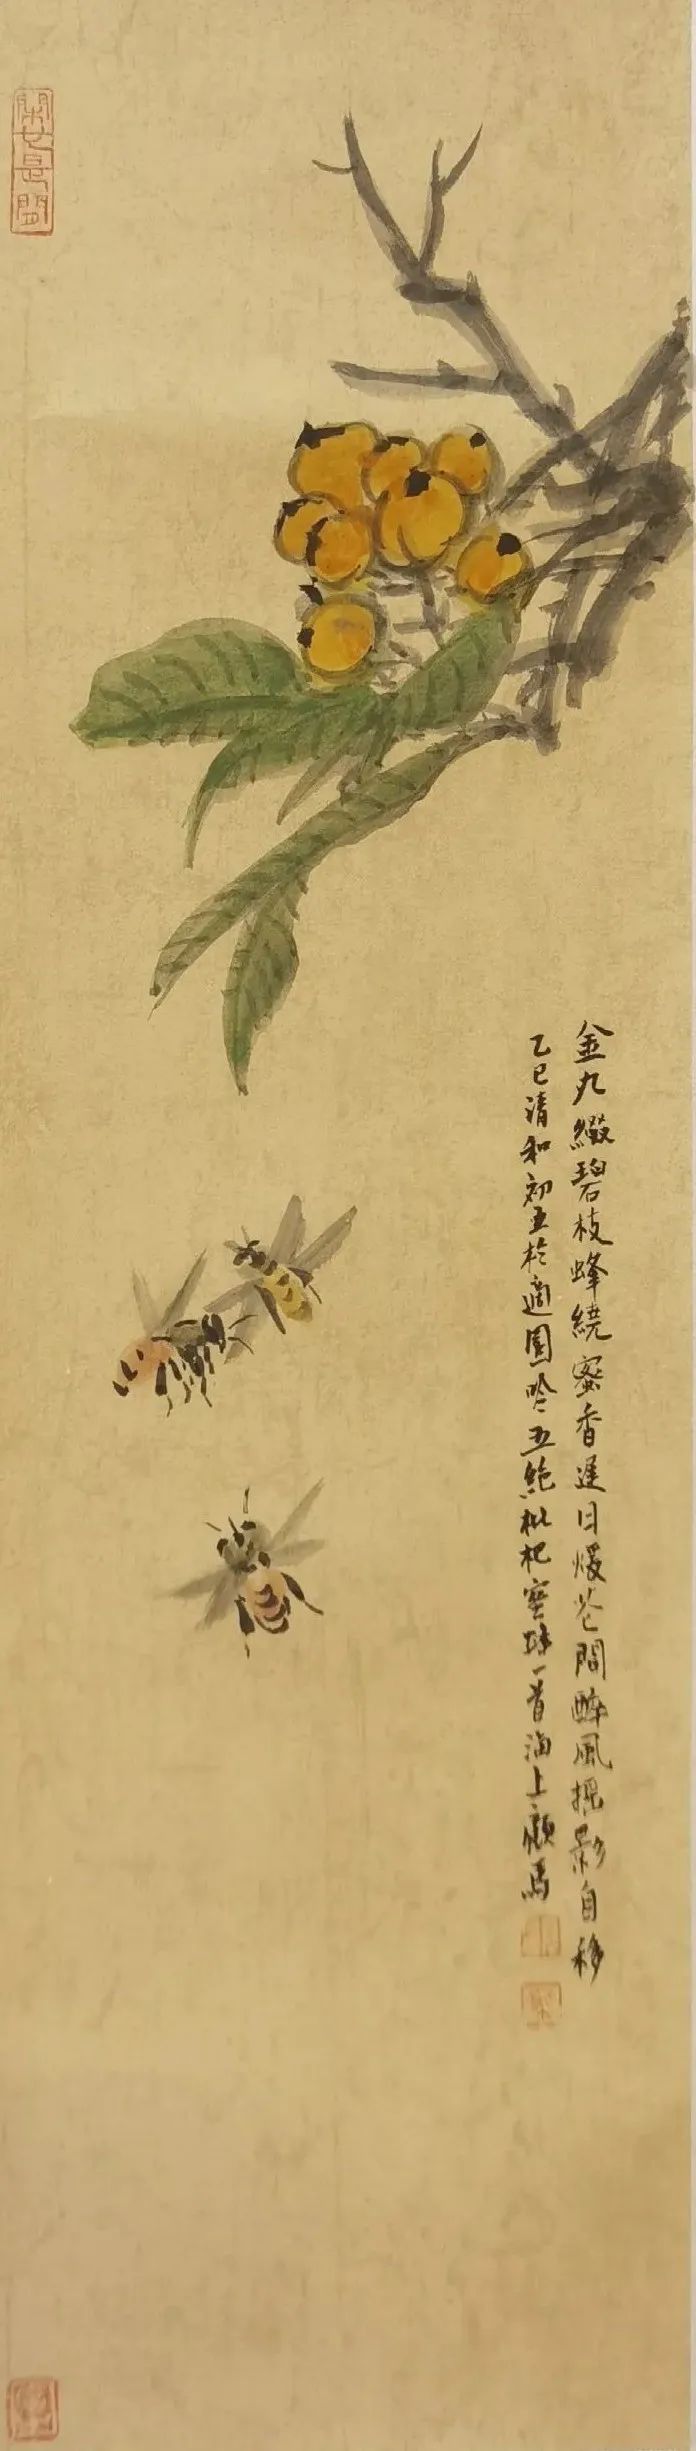 金丸綴碧枝蜂繞蜜香遲日煖花間醉風摇影自移
乙巳清和初五於適園吟五絕枇杷蜜蜂一首海上顧馬